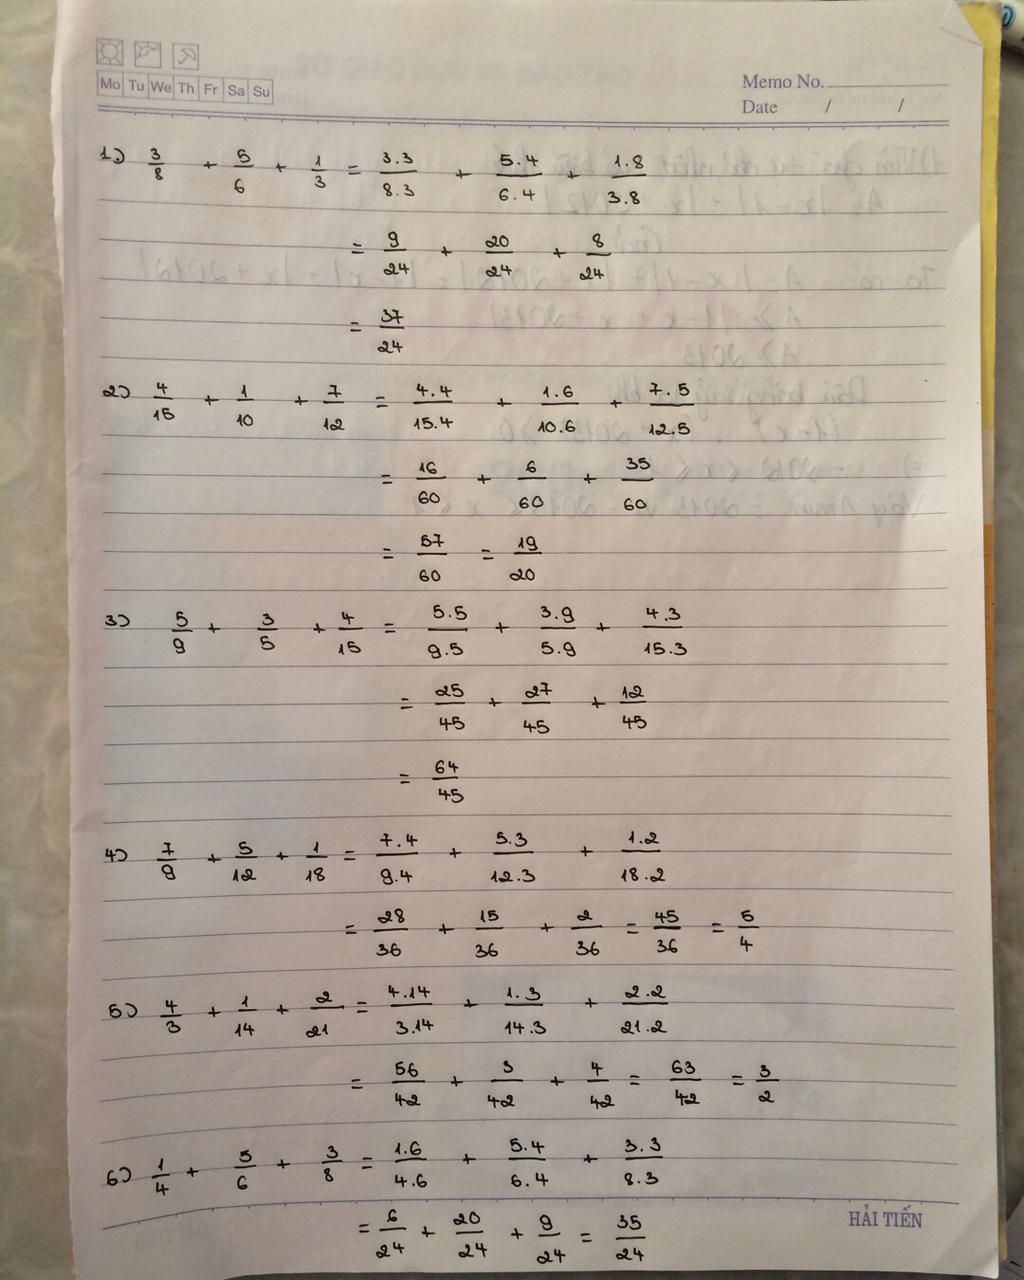 Mo Tu We Th Fr Sa Su
Memo No.
Date / /
1) 3/8 + 5/6 + 1/3 = 3.3/8.3 + 5.4/6.4 + 1.8/3.8
= 9/24 + 20/24 + 8/24
= 37/24
2) 4/15 + 1/10 + 7/12 = 4.4/15.4 + 1.6/10.6 + 7.5/12.5
= 16/60 + 6/60 + 35/60
= 57/60 = 19/20
3) 5/9 + 3/5 + 4/15 = 5.5/9.5 + 3.9/5.9 + 4.3/15.3
= 25/45 + 27/45 + 12/45
= 64/45
4) 7/9 + 5/12 + 1/18 = 7.4/9.4 + 5.3/12.3 + 1.2/18.2
= 28/36 + 15/36 + 2/36 = 45/36 = 5/4
5) 4/3 + 1/14 + 2/21 = 4.14/3.14 + 1.3/14.3 + 2.2/21.2
= 56/42 + 3/42 + 4/42 = 63/42 = 3/2
6) 1/4 + 5/6 + 3/8 = 1.6/4.6 + 5.4/6.4 + 3.3/8.3
= 6/24 + 20/24 + 9/24 = 35/24
HẢI TIẾN